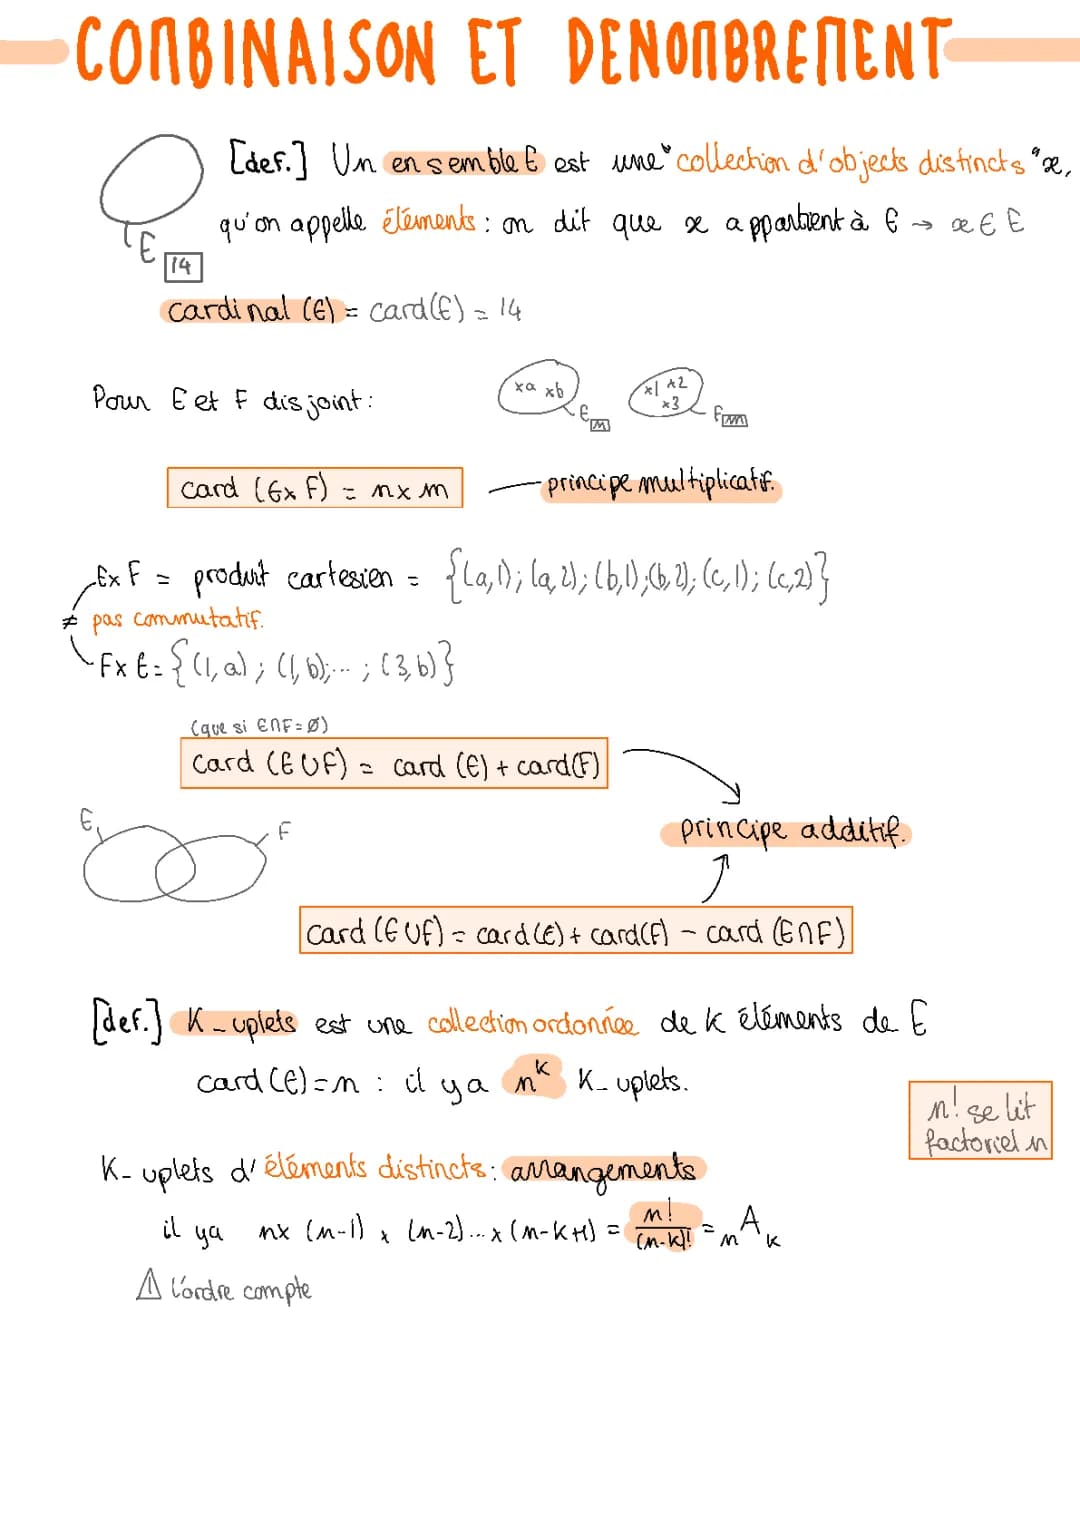 COMBINAISON ET DENOMBREMENT
[def.] Un ensemble E est une "collection d'objects distincts" x,
qu'on appelle éléments : on dit que x appartient à E → x ∈ E
E
14
cardinal (E) = card(E) = 14
Pour E et F disjoint :
xa xb
E n
x1 x2
x3
F m
card (E x F) = n x m — principe multiplicatif.
E x F = produit cartesien = {(a,1); (a,2); (b,1); (b,2); (c,1); (c,2)}
≠ pas commutatif.
F x E = {(1,a) ; (1,b);... ; (3,b)}
(que si E∩F=Ø)
card (E∪F) = card (E) + card(F)
E
F
principe additif.
card (E∪F) = card(E) + card(F) - card (E∩F)
[def.] K-uplets est une collection ordonnée de k éléments de E
card (E) = n : il y a n^k K-uplets.
n! se lit
factoriel n
K-uplets d'éléments distincts : arrangements
il y a n x (n-1) x (n-2) ... x (n-k+1) = n!/(n-k)! = nAk
⚠ l'ordre compte